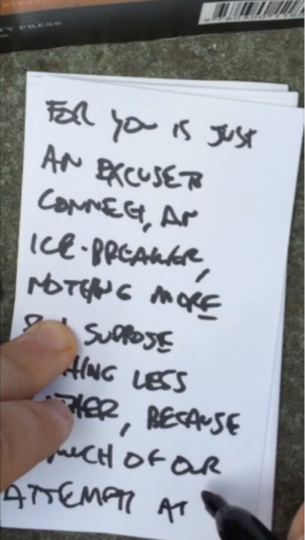 Y PRESS
FOR YOU IS JUST
AN EXCUSE TO
CONNECT, AN
ICE-BREAKER,
NOTHING MORE
SUPPOSE
THING LESS
THER, BECAUSE
MUCH OF OUR
ATTEMPT AT